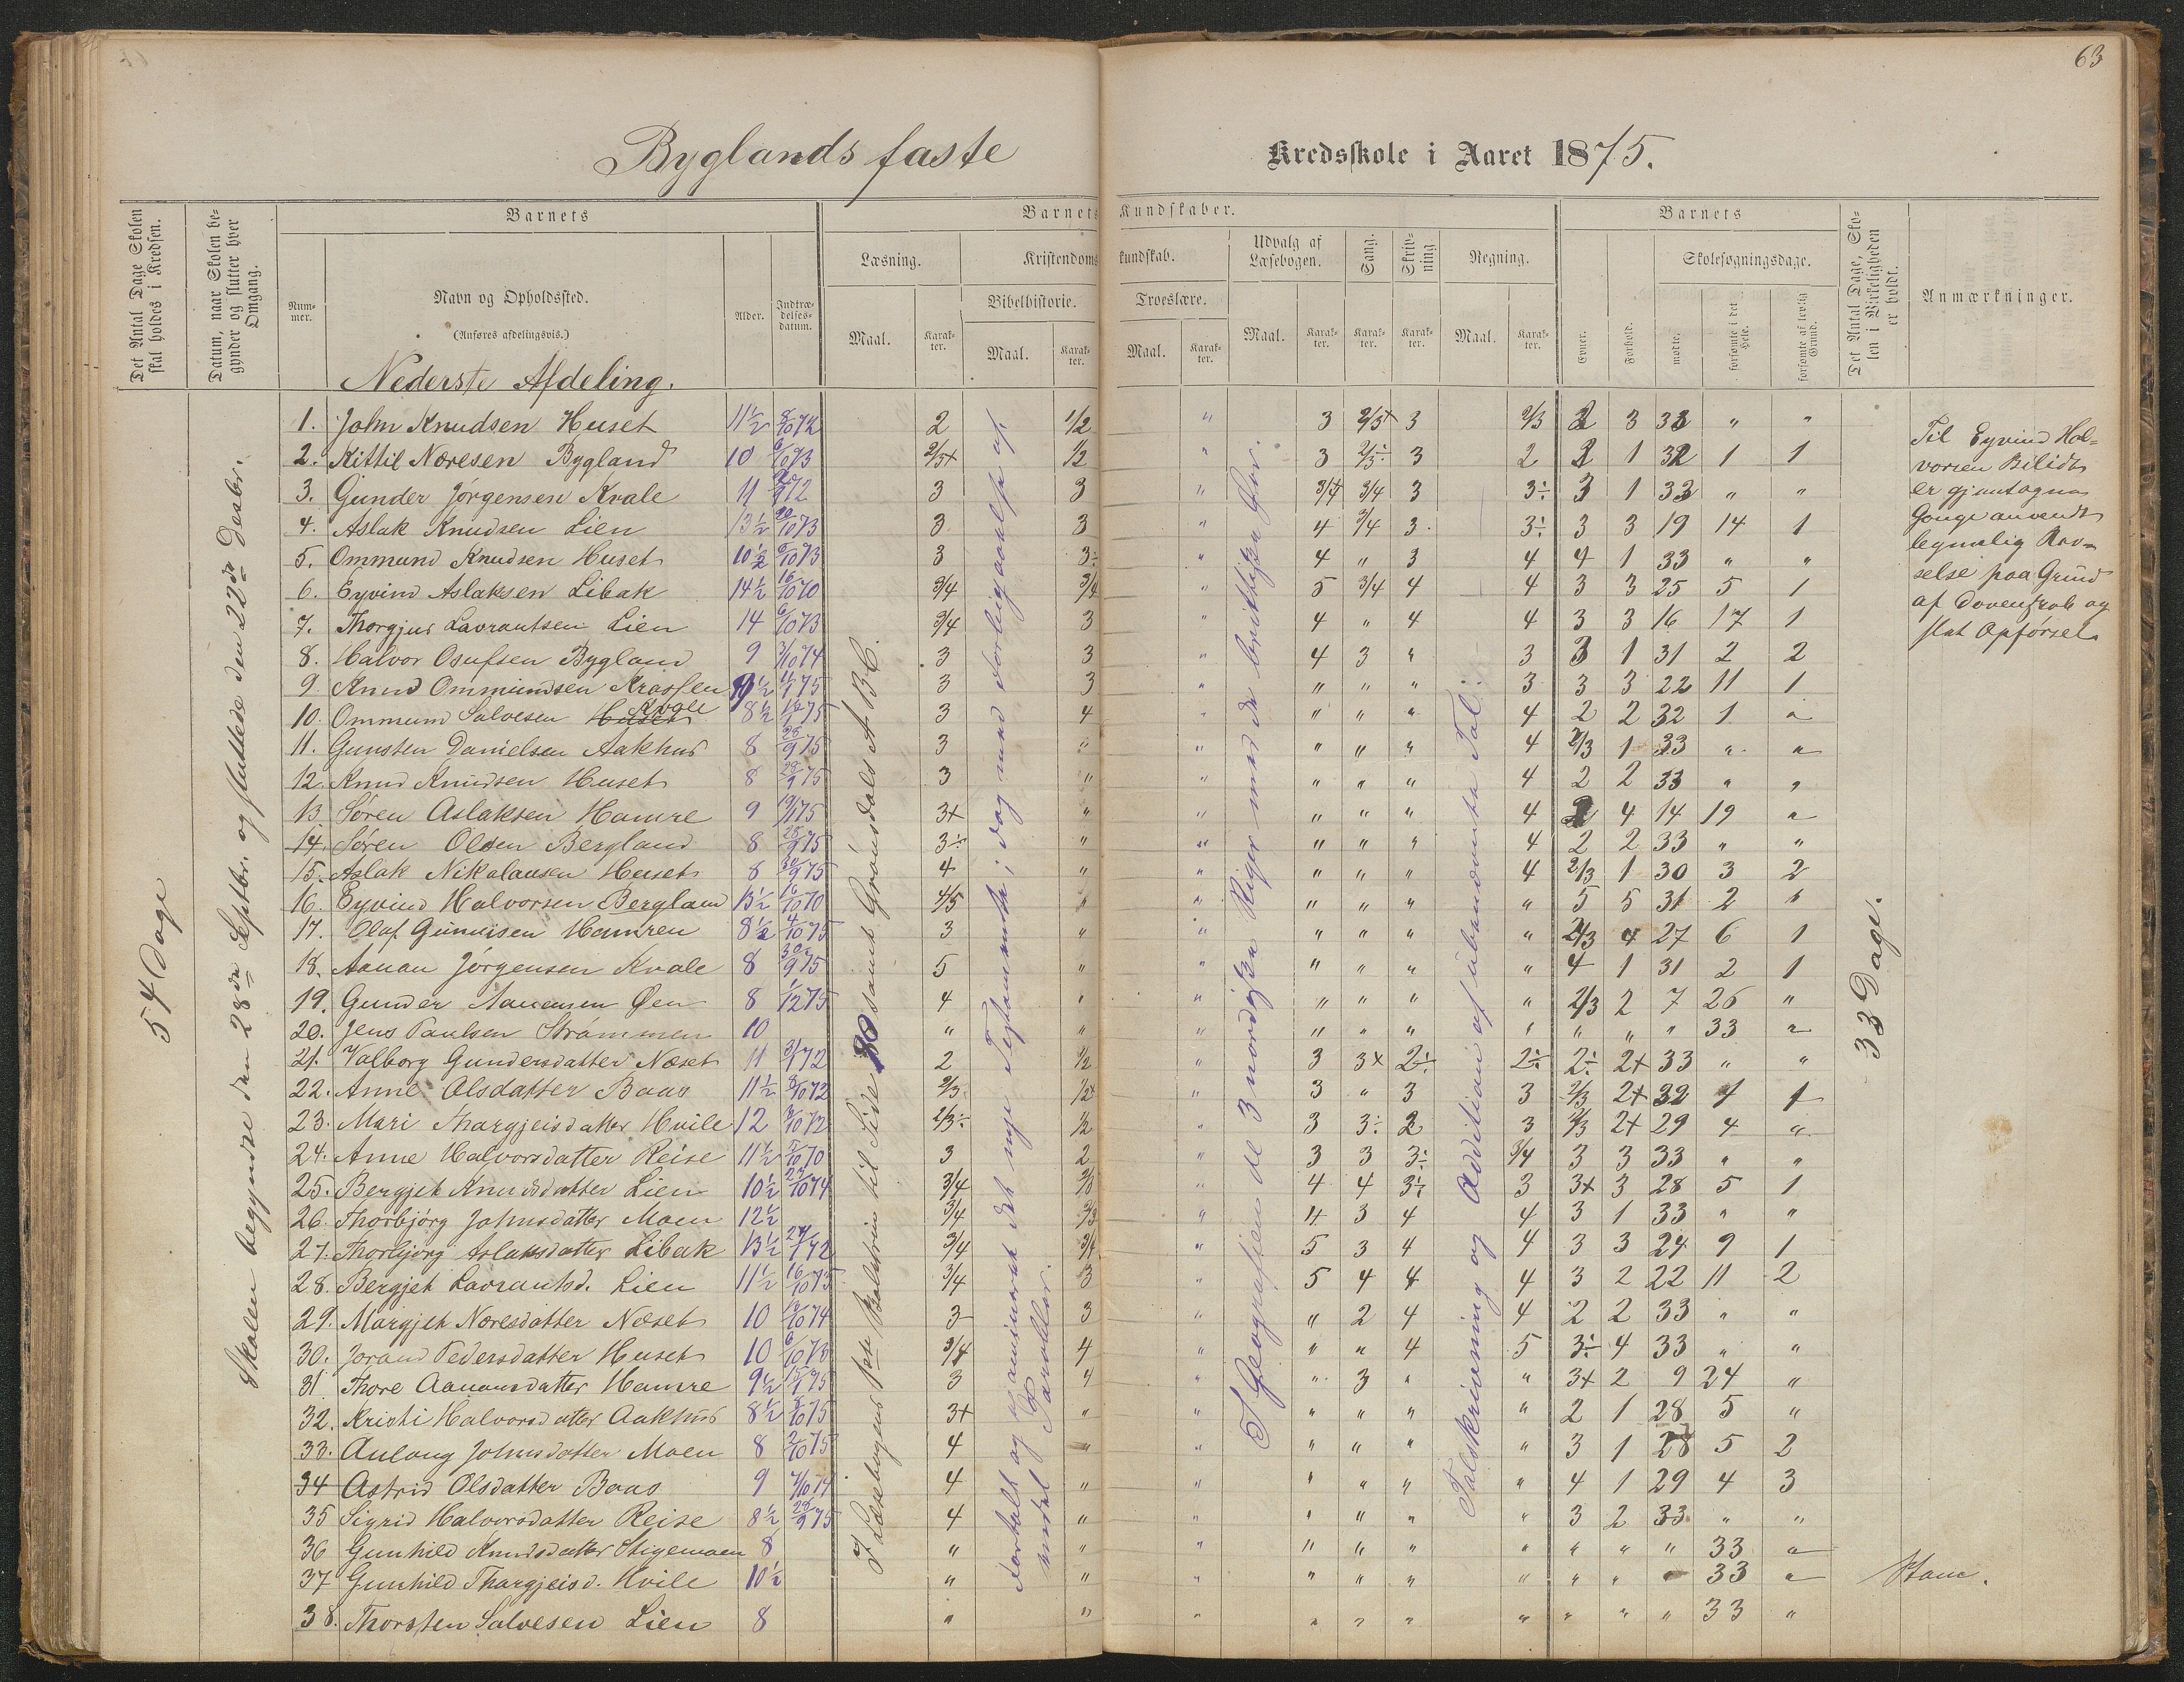 63
Byglands faste Kredsskole i Aaret 1875.
Det Antal Dage Skolen skal holdes i Kredsen.
Datum, naar Skolen begynder og slutter hver Omgang.
Barnets
Barnets Kundskaber.
Barnets
Det Antal Dage, Skolen i Virkeligheden er holdt.
Anmærkninger.
Nummer.
Navn og Opholdssted.
(Anføres afdelingsvis.)
Alder.
Indtrædelsesdatum.
Læsning.
Kristendomskundskab.
Udvalg af Læsebogen.
Sang.
Skrivning
Regning.
Evner.
Forhold.
Skolesøgningsdage.
Bibelhistorie.
Troeslære.
mødte.
forsømte i det Hele.
forsømte af lovlig Grund.
Maal. Karakter. Maal. Karakter. Maal. Karakter. Maal. Karakter. Karakter. Karakter. Maal. Karakter.
Nederste Afdeling.
54 Dage
Skolen begyndte den 28de Septbr. og sluttede den 22de Desbr.
1. John Knudsen Huset 11½ 8/10 72 2 1/2 " 3 2/3+ 3 2/3 2 3 33 " "
2. Kittil Noresen Bygland 10 6/10 73 2/3+ 1/2 " 3 2/3÷ 3 2 2 1 32 1 1
3. Gunder Jørgensen Kvale 11 72 3 3 " 3/4 3/4 3 3÷ 3 1 33 " "
4. Aslak Knudsen Lien 13½ 20/10 73 3 3 " 4 3/4 3 3÷ 3 3 19 14 1
5. Ommund Knudsen Huset 10½ 6/10 73 3 3÷ " 4 " 3 4 4 1 33 " "
6. Eyvind Aslaksen Libak 14½ 16/10 70 3/4 3/4 " 5 3/4 4 4 3 3 25 5 1
7. Thorgjus Lavrantsen Lien 14 6/10 73 3/4 3 " 4 " 4 4 3 3 16 17 1
8. Halvor Osufsen Bygland 9 2/10 74 3 3 " 4 3 " 3 3 1 31 2 2
9. Knud Ommundsen 75 3 3 " " " " 3 3 3 22 11 1
10. Ommund Salvesen Kvale 8½ 75 3 4 " " " " 4 2 2 32 1 "
11. Gunsten Danielsen Aakhus 8 28/9 75 3 " " " " " 4 2/3 1 33 " "
12. Knud Knudsen Huset 8 29/9 75 3 " " " " " 4 2 2 33 " "
13 Søren Aslaksen Hamre 9 75 3+ " " " " " 4 2 4 14 19 "
14. Søren Olsen Bergland 8 28/9 75 3÷ " " " " " 4 2 2 33 " "
15. Aslak Nikolausen Huset 8 30/9 75 4 " " " " " 4 2/3 1 30 3 2
16. Eyvind Halvorsen Bergland 13½ 16/10 70 4/5 " " " " " " 5 5 31 2 "
17. Olaf Gundersen Hamren 8½ 4/10 75 3 " " " " " " 2/3 4 27 6 1
18. Aanan Jørgensen Kvale 8 30/9 75 5 " " " " " " 4 1 31 2 1
19. Gunder Aanensen Øen 8 1/12 75 4 " " " " " " 2/3 2 7 26 "
20. Jens Paulsen Strømmen 10 " " " " " " " " " " 33 "
21. Valborg Gundersdatter Næset 11 72 2 1/2 " 3 3+ 2÷ 2÷ 2÷ 2+ 33 " "
22. Anne Olsdatter Baas 11½ 8/10 72 2/3 1/2+ " 3 " 3 3 2/3 2+ 32 1 1
23. Mari Thorgjeisdatter Hvile 12 72 2/3÷ 1/2 " 3 3÷ 2 3 2/3 2+ 29 4 "
24. Anne Halvorsdatter Reise 11½ 5/10 70 3 2 " 3 3 3÷ 3/4 3 3 33 " "
25. Bergjet Knudsdatter Lien 10½ 74 3/4 2/3 " 4 4 3÷ 3 3+ 3 28 5 1
26. Thorbjørg Johnsdatter Moen 12½ 3/4 2/3 " 4 3 4 4 3 1 33 " "
27. Thorbjørg Aslaksdatter Libak 13½ 72 3/4 3/4 " 5 3 4 4 3 3 24 9 1
28. Bergjet Lavrantsd. Lien 11½ 16/10 73 3/4 3 " 5 4 4 4 3 2 22 11 2
29. Margjet Noresdatter Næset 10 74 3 3 " " 2 4 4 2 2 33 " "
30. Jorand Pedersdatter Huset 10 6/10 73 3/4 4 " " " 4 5 3÷ 4 33 " "
31 Thore Aanansdatter Hamre 9½ 75 3 4 " " 3 " " 3+ 2 9 24 "
32. Kristi Halvorsdatter Aakhus 8½ 75 3+ " " " " " " 2 1 28 5 "
33. Aulaug Johnsdatter Moen 8 2/10 75 4 " " " " " " 3 1 28 5 2
34 Astrid Olsdatter Baas 9 7/10 74 4 " " " " " " 4 1 29 4 3
35 Sigrid Halvorsdatter Reise 8½ 28/9 75 4 " " " " " " 3 2 33 " "
36 Gunhild Knudsdatter Stigemoen 8 " " " " " " " " " " 33 "
37 Gunhild Thorgjeisd. Hvile 10½ " " " " " " " " " " 33 "
38. Thorsten Salvesen Lien 8 " " " " " " " " " " 33 "
I Læsebogens 1ste til Side 80 samt Grønsdals A B C.
fortalt og examineret det nye Testamente; dog med Forbigaaelse af Parabler.
I Geografien de 3 nordiske Riger med de brittiske Øer.
Talskrivning og Addition af ubenævnte Tal.
33 Dage.
Til Eyvind Halvorsen Bilidt
er gjentagne
Gange anvendt
legemlig Revselse paa Grund
af Dovenskab og
slet Opførsel.